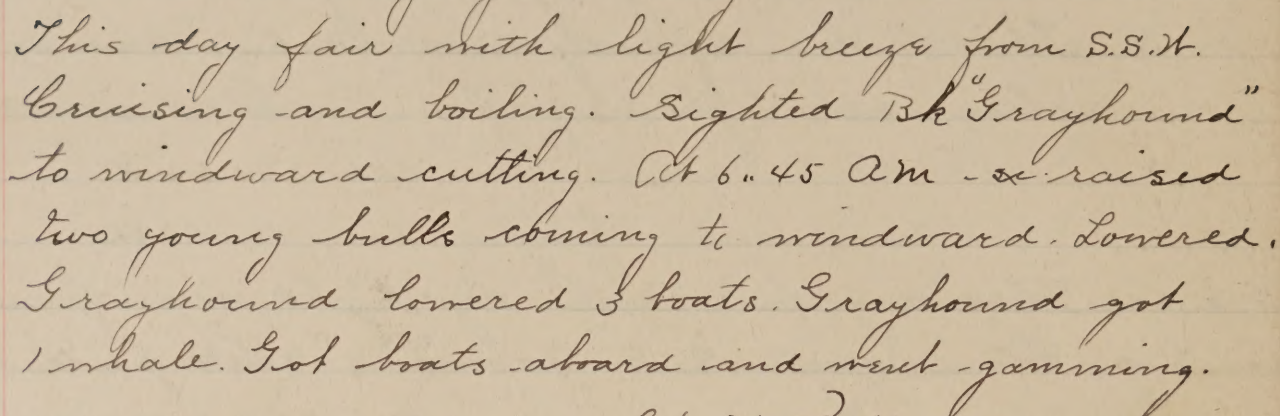 This day fair with light breeze from S.S.W.
Cruising and boiling. Sighted Bk "Grayhound"
to windward cutting. At 6.. 45 AM raised
two young bulls coming to windward. Lowered.
Grayhound lowered 3 boats. Grayhound got
1 whale. Got boats aboard and went gamming.